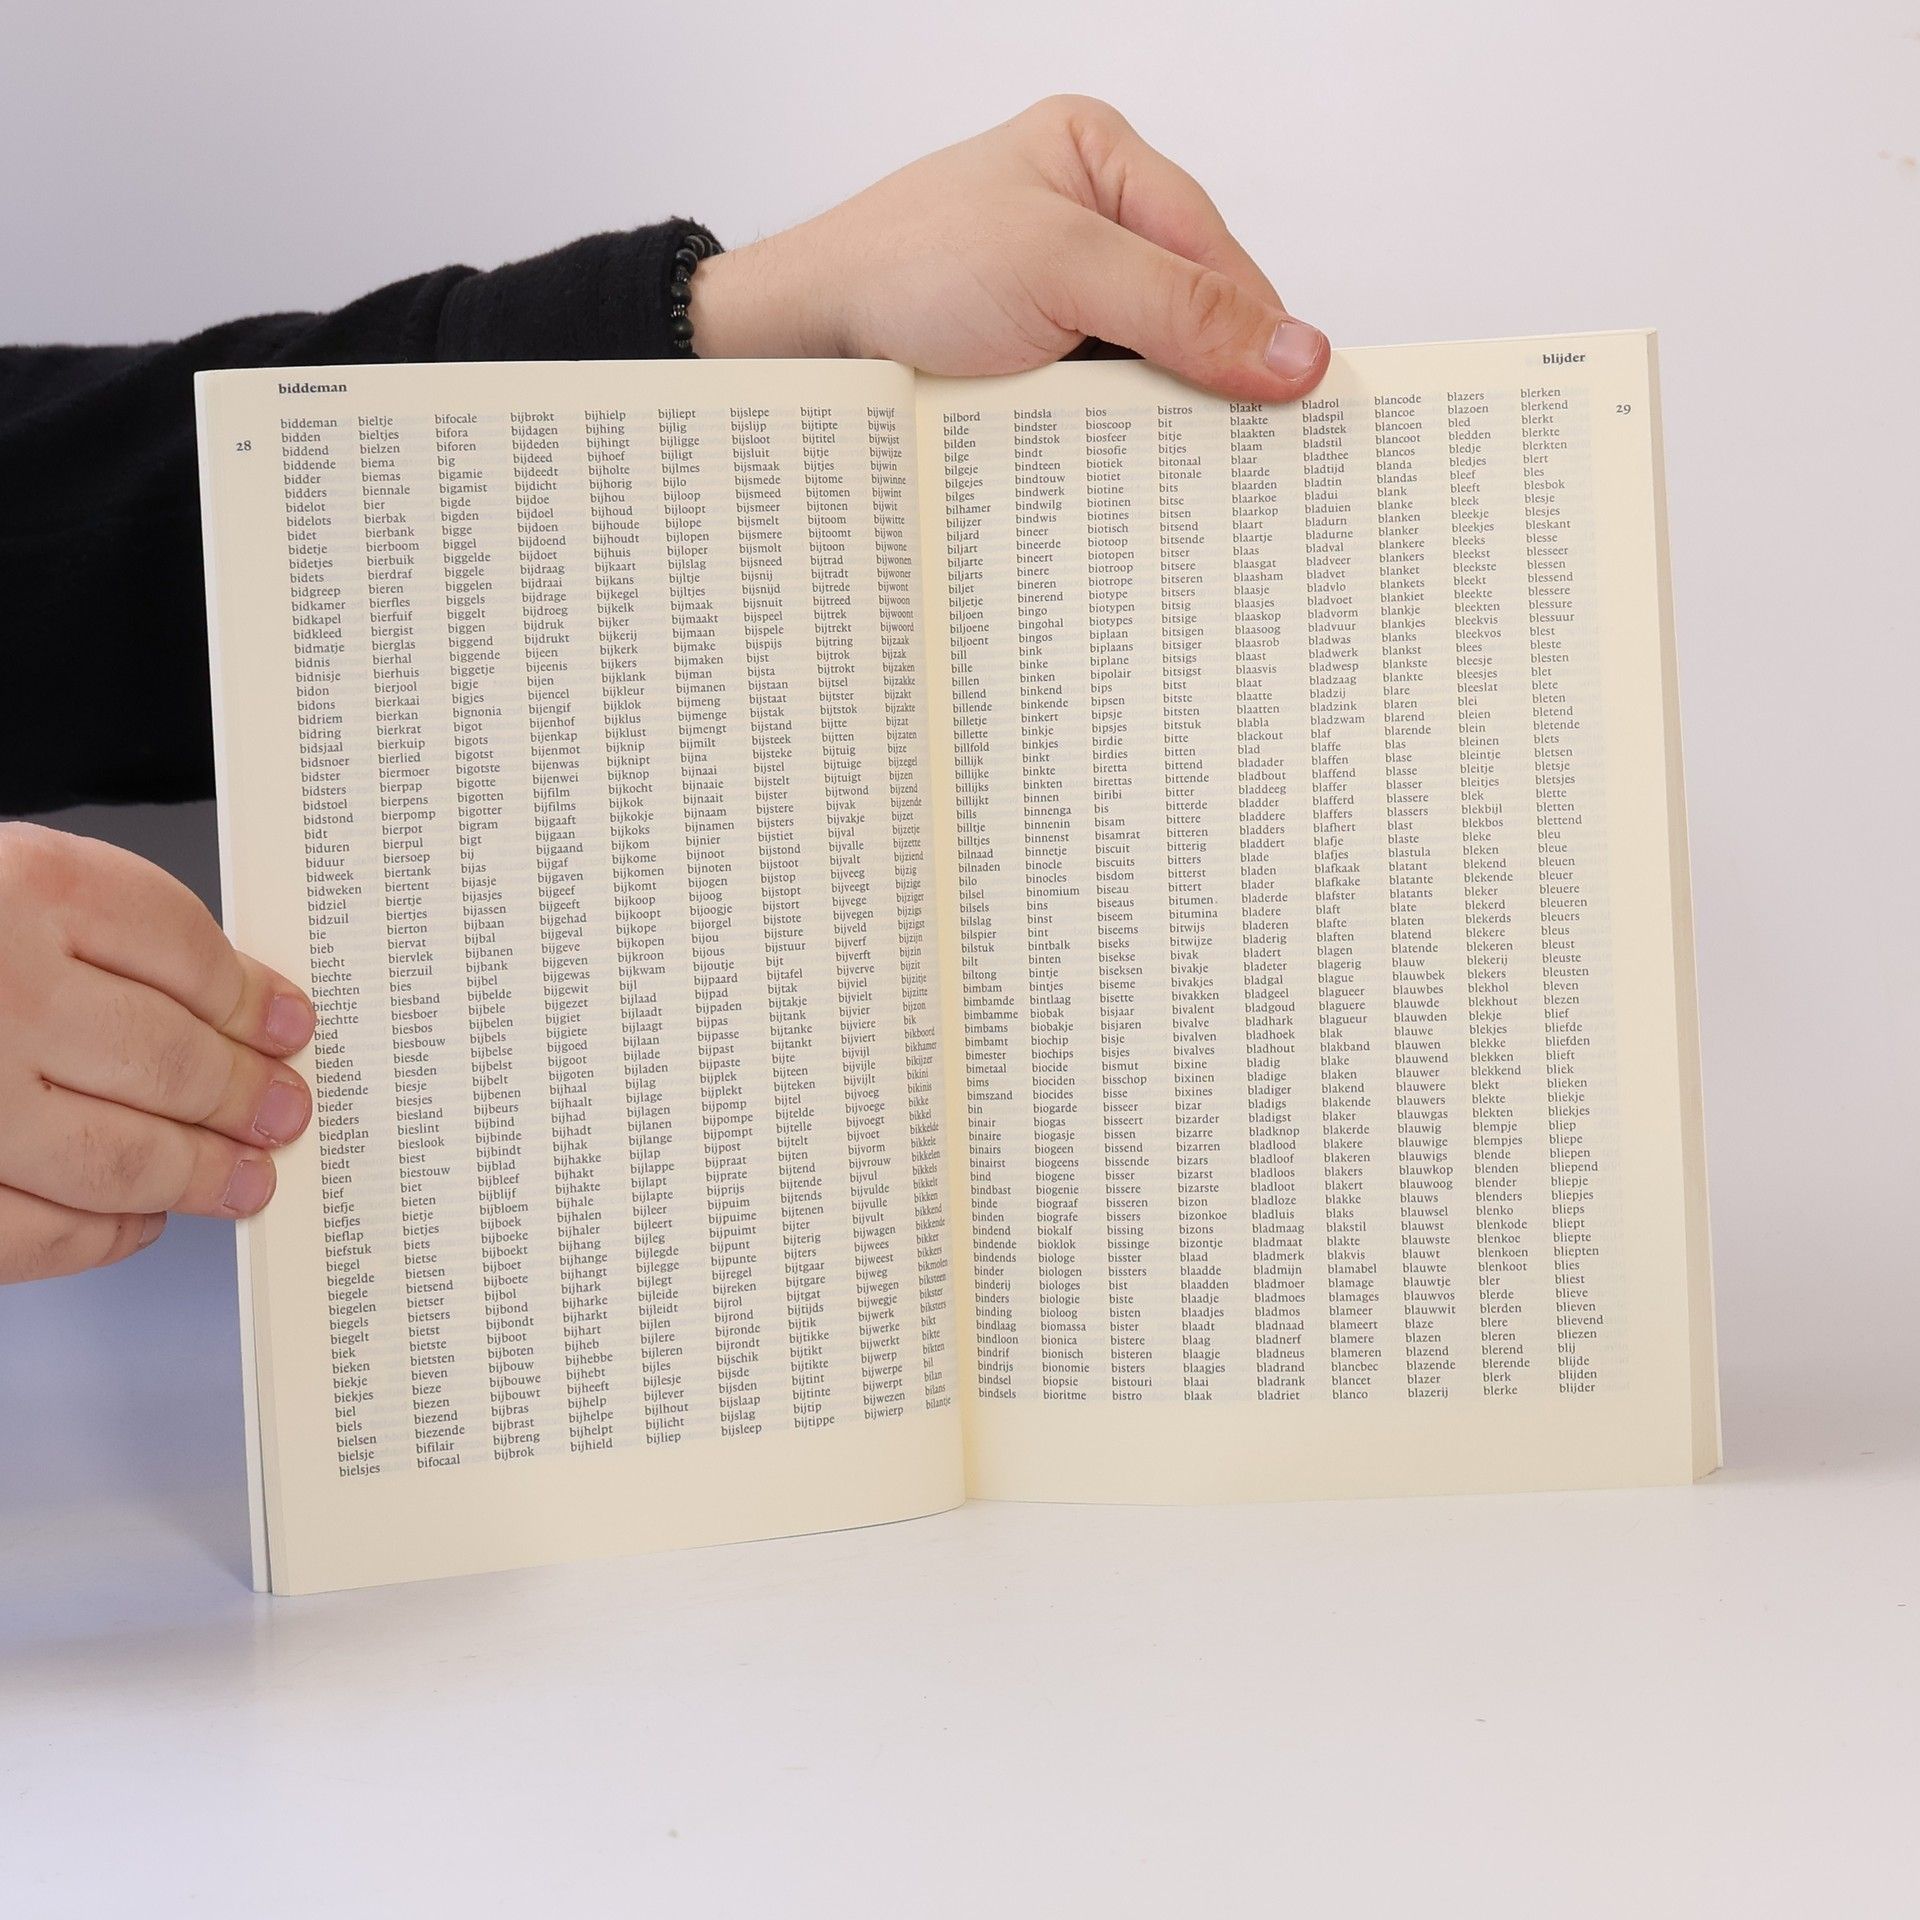 biddeman
28
biddeman
bidden
biddend
biddende
bidder
bidders
bidelot
bidelots
bidet
bidetje
bidetjes
bidets
bidgreep
bidkamer
bidkapel
bidkleed
bidmatje
bidnis
bidnisje
bidon
bidons
bidriem
bidring
bidsjaal
bidsnoer
bidster
bidsters
bidstoel
bidstond
bidt
biduren
biduur
bidweek
bidweken
bidziel
bidzuil
bie
bieb
biecht
biechte
biechten
biechtje
biechtte
bied
biede
bieden
biedend
biedende
bieder
bieders
biedplan
biedster
biedt
bieen
bief
biefje
biefjes
bieflap
biefstuk
biegel
biegelde
biegele
biegelen
biegels
biegelt
biek
bieken
biekje
biekjes
biel
biels
bielsen
bielsje
bielsjes
bieltje
bieltjes
bielzen
biema
biemas
biennale
bier
bierbak
bierbank
bierboom
bierbuik
bierdraf
bieren
bierfles
bierfuif
biergist
bierglas
bierhal
bierhuis
bierjool
bierkaai
bierkan
bierkrat
bierkuip
bierlied
biermoer
bierpap
bierpens
bierpomp
bierpot
bierpul
biersoep
biertank
biertent
biertje
biertjes
bierton
biervat
biervlek
bierzuil
bies
biesband
biesboer
biesbos
biesbouw
biesde
biesden
biesje
biesjes
biesland
bieslint
bieslook
biest
biestouw
biet
bieten
bietje
bietjes
biets
bietse
bietsen
bietsend
bietser
bietsers
bietst
bietste
bietsten
bieven
bieze
biezen
biezend
biezende
bifilair
bifocaal
bifocale
bifora
biforen
big
bigamie
bigamist
bigde
bigden
bigge
biggel
biggelde
biggele
biggelen
biggels
biggelt
biggen
biggend
biggende
biggetje
bigje
bigjes
bignonia
bigot
bigots
bigotst
bigotste
bigotte
bigotten
bigotter
bigram
bigt
bij
bijas
bijasje
bijasjes
bijassen
bijbaan
bijbal
bijbanen
bijbank
bijbel
bijbelde
bijbele
bijbelen
bijbels
bijbelse
bijbelst
bijbelt
bijbenen
bijbeurs
bijbind
bijbinde
bijbindt
bijblad
bijbleef
bijblijf
bijbloem
bijboek
bijboeke
bijboekt
bijboet
bijboete
bijbol
bijbond
bijbondt
bijboot
bijboten
bijbouw
bijbouwe
bijbouwt
bijbras
bijbrast
bijbreng
bijbrok
bijbrokt
bijdagen
bijdeden
bijdeed
bijdeedt
bijdicht
bijdoe
bijdoel
bijdoen
bijdoend
bijdoet
bijdraag
bijdraai
bijdrage
bijdroeg
bijdruk
bijdrukt
bijeen
bijeenis
bijen
bijencel
bijengif
bijenhof
bijenkap
bijenmot
bijenwas
bijenwei
bijfilm
bijfilms
bijgaaft
bijgaan
bijgaand
bijgaf
bijgaven
bijgeef
bijgeeft
bijgehad
bijgeval
bijgeve
bijgeven
bijgewas
bijgewit
bijgezet
bijgiet
bijgiete
bijgoed
bijgoot
bijgoten
bijhaal
bijhaalt
bijhad
bijhadt
bijhak
bijhakke
bijhakt
bijhakte
bijhale
bijhalen
bijhaler
bijhang
bijhange
bijhangt
bijhark
bijharke
bijharkt
bijhart
bijheb
bijhebbe
bijhebt
bijheeft
bijhelp
bijhelpe
bijhelpt
bijhield
bijhielp
bijhing
bijhingt
bijhoef
bijholte
bijhorig
bijhou
bijhoud
bijhoude
bijhoudt
bijhuis
bijkaart
bijkans
bijkegel
bijkelk
bijker
bijkerij
bijkerk
bijkers
bijklank
bijkleur
bijklok
bijklus
bijklust
bijknip
bijknipt
bijknop
bijkocht
bijkok
bijkokje
bijkoks
bijkom
bijkome
bijkomen
bijkomt
bijkoop
bijkoopt
bijkope
bijkopen
bijkroon
bijkwam
bijl
bijlaad
bijlaadt
bijlaagt
bijlaan
bijlade
bijladen
bijlag
bijlage
bijlagen
bijlanen
bijlange
bijlap
bijlappe
bijlapt
bijlapte
bijleer
bijleert
bijleg
bijlegde
bijlegge
bijlegt
bijleide
bijleidt
bijlen
bijlere
bijleren
bijles
bijlesje
bijlever
bijlhout
bijlicht
bijliep
bijliept
bijlig
bijligge
bijligt
bijlmes
bijlo
bijloop
bijloopt
bijlope
bijlopen
bijloper
bijlslag
bijltje
bijltjes
bijmaakt
bijmaan
bijmake
bijmaken
bijman
bijmanen
bijmeng
bijmenge
bijmengt
bijmilt
bijna
bijnaai
bijnaaie
bijnaait
bijnaam
bijnamen
bijnier
bijnoot
bijnoten
bijogen
bijoog
bijoogje
bijorgel
bijou
bijous
bijoutje
bijpaard
bijpad
bijpaden
bijpas
bijpasse
bijpast
bijpaste
bijplek
bijplekt
bijpomp
bijpompe
bijpompt
bijpost
bijpraat
bijprate
bijprijs
bijpuim
bijpuime
bijpuimt
bijpunt
bijpunte
bijregel
bijreken
bijrol
bijrond
bijronde
bijrondt
bijschik
bijsde
bijsden
bijslaap
bijslag
bijsleep
bijslepe
bijslijp
bijsloot
bijsluit
bijsmaak
bijsmede
bijsmeed
bijsmeer
bijsmelt
bijsmere
bijsmolt
bijsneed
bijsnij
bijsnijd
bijsnuit
bijspeel
bijspele
bijspijs
bijst
bijsta
bijstaan
bijstaat
bijstak
bijstand
bijsteek
bijsteke
bijstel
bijstelt
bijster
bijstere
bijsters
bijstiet
bijstond
bijstoot
bijstop
bijstopt
bijstort
bijstote
bijsture
bijstuur
bijt
bijtafel
bijtak
bijtakje
bijtank
bijtanke
bijtankt
bijte
bijteen
bijteken
bijtel
bijtelde
bijtelle
bijtelt
bijten
bijtend
bijtende
bijtends
bijtenen
bijter
bijterig
bijters
bijtgaar
bijtgare
bijtgat
bijtijds
bijtik
bijtikke
bijtikt
bijtikte
bijtint
bijtinte
bijtip
bijtippe
bijtipt
bijtipte
bijtitel
bijtje
bijtjes
bijtome
bijtomen
bijtonen
bijtoom
bijtoomt
bijtoon
bijtrad
bijtradt
bijtrede
bijtreed
bijtrek
bijtrekt
bijtring
bijtrok
bijtrokt
bijtsel
bijtster
bijtstok
bijtte
bijtten
bijtuig
bijtuige
bijtuigt
bijtwond
bijvak
bijvakje
bijval
bijvalle
bijvalt
bijveeg
bijveegt
bijvege
bijvegen
bijveld
bijverf
bijverft
bijverve
bijviel
bijvielt
bijvier
bijviere
bijviert
bijvijl
bijvijle
bijvijlt
bijvoeg
bijvoege
bijvoegt
bijvoet
bijvorm
bijvrouw
bijvul
bijvulde
bijvulle
bijvult
bijwagen
bijwees
bijweest
bijweg
bijwegen
bijwegje
bijwerk
bijwerke
bijwerkt
bijwerp
bijwerpe
bijwerpt
bijwezen
bijwierp
bijwijf
bijwijs
bijwijst
bijwijze
bijwin
bijwinne
bijwint
bijwit
bijwitte
bijwon
bijwone
bijwonen
bijwoner
bijwont
bijwoon
bijwoont
bijwoord
bijzaak
bijzak
bijzaken
bijzakke
bijzakt
bijzakte
bijzat
bijzaten
bijze
bijzegel
bijzen
bijzend
bijzende
bijzet
bijzetje
bijzette
bijziend
bijzig
bijzige
bijziger
bijzigs
bijzigst
bijzijn
bijzin
bijzit
bijzitje
bijzitte
bijzon
bik
bikboord
bikhamer
bikijzer
bikini
bikinis
bikke
bikkel
bikkelde
bikkele
bikkelen
bikkels
bikkelt
bikken
bikkend
bikkende
bikker
bikkers
bikmolen
biksteen
bikster
biksters
bikt
bikte
bikten
bil
bilan
bilans
bilantje
blijder
29
bilbord
bilde
bilden
bilge
bilgeje
bilgejes
bilges
bilhamer
bilijzer
biljard
biljart
biljarte
biljarts
biljet
biljetje
biljoen
biljoene
biljoent
bill
bille
billen
billend
billende
billetje
billette
billfold
billijk
billijke
billijks
billijkt
bills
billtje
billtjes
bilnaad
bilnaden
bilo
bilsel
bilsels
bilslag
bilspier
bilstuk
bilt
biltong
bimbam
bimbamde
bimbamme
bimbams
bimbamt
bimester
bimetaal
bims
bimszand
bin
binair
binaire
binairs
binairst
bind
bindbast
binde
binden
bindend
bindende
bindends
binder
binderij
binders
binding
bindlaag
bindloon
bindrif
bindrijs
bindsel
bindsels
bindsla
bindster
bindstok
bindt
bindteen
bindtouw
bindwerk
bindwilg
bindwis
bineer
bineerde
bineert
binere
bineren
binerend
bingo
bingohal
bingos
bink
binke
binken
binkend
binkende
binkert
binkje
binkjes
binkt
binkte
binkten
binnen
binnenga
binnenin
binnenst
binnetje
binocle
binocles
binomium
bins
binst
bint
bintbalk
binten
bintje
bintjes
bintlaag
biobak
biobakje
biochip
biochips
biocide
biociden
biocides
biogarde
biogas
biogasje
biogeen
biogeens
biogene
biogenie
biograaf
biografe
biokalf
bioklok
biologe
biologen
biologes
biologie
bioloog
biomassa
bionica
bionisch
bionomie
biopsie
bioritme
bios
bioscoop
biosfeer
biosofie
biotiek
biotiet
biotine
biotinen
biotines
biotisch
biotoop
biotopen
biotroop
biotrope
biotype
biotypen
biotypes
biplaan
biplaans
biplane
bipolair
bips
bipsen
bipsje
bipsjes
birdie
birdies
biretta
birettas
biribi
bis
bisam
bisamrat
biscuit
biscuits
bisdom
biseau
biseaus
biseem
biseems
biseks
bisekse
biseksen
biseme
bisette
bisjaar
bisjaren
bisje
bisjes
bismut
bisschop
bisse
bisseer
bisseert
bissen
bissend
bissende
bisser
bissere
bisseren
bissers
bissing
bissinge
bisster
bissters
bist
biste
bisten
bister
bistere
bisteren
bisters
bistouri
bistro
bistros
bit
bitje
bitjes
bitonaal
bitonale
bits
bitse
bitsen
bitsend
bitsende
bitser
bitsere
bitseren
bitsers
bitsig
bitsige
bitsigen
bitsiger
bitsigs
bitsigst
bitst
bitste
bitsten
bitstuk
bitte
bitten
bittend
bittende
bitter
bitterde
bittere
bitteren
bitterig
bitters
bitterst
bittert
bitumen
bitumina
bitwijs
bitwijze
bivak
bivakje
bivakjes
bivakken
bivalent
bivalve
bivalven
bivalves
bixine
bixinen
bixines
bizar
bizarder
bizarre
bizarren
bizars
bizarst
bizarste
bizon
bizonkoe
bizons
bizontje
blaad
blaadde
blaadden
blaadje
blaadjes
blaadt
blaag
blaagje
blaagjes
blaai
blaak
blaakt
blaakte
blaakten
blaam
blaar
blaarde
blaarden
blaarkoe
blaarkop
blaart
blaartje
blaas
blaasgat
blaasham
blaasje
blaasjes
blaaskop
blaasoog
blaasrob
blaast
blaasvis
blaat
blaatte
blaatten
blabla
blackout
blad
bladader
bladbout
bladdeeg
bladder
bladdere
bladders
bladdert
blade
bladen
blader
bladerde
bladere
bladeren
bladerig
bladert
bladeter
bladgal
bladgeel
bladgoud
bladhark
bladhoek
bladhout
bladig
bladige
bladiger
bladigs
bladigst
bladknop
bladlood
bladloof
bladloos
bladloot
bladloze
bladluis
bladmaag
bladmaat
bladmerk
bladmijn
bladmoer
bladmoes
bladmos
bladnaad
bladnerf
bladneus
bladrand
bladrank
bladriet
bladrol
bladspil
bladstek
bladstil
bladthee
bladtijd
bladtin
bladui
bladuien
bladurn
bladurne
bladval
bladveer
bladvet
bladvlo
bladvoet
bladvorm
bladvuur
bladwas
bladwerk
bladwesp
bladzaag
bladzij
bladzink
bladzwam
blaf
blaffe
blaffen
blaffend
blaffer
blafferd
blaffers
blafhert
blafje
blafjes
blafkaak
blafkake
blafster
blaft
blafte
blaften
blagen
blagerig
blague
blagueer
blaguere
blagueur
blak
blakband
blake
blaken
blakend
blakende
blaker
blakerde
blakere
blakeren
blakers
blakert
blakke
blaks
blakstil
blakte
blakvis
blamabel
blamage
blamages
blameer
blameert
blamere
blameren
blancbec
blancet
blanco
blancode
blancoe
blancoen
blancoot
blancos
blanda
blandas
blank
blanke
blanken
blanker
blankere
blankers
blanket
blankets
blankiet
blankje
blankjes
blanks
blankst
blankste
blankte
blare
blaren
blarend
blarende
blas
blase
blasse
blasser
blassere
blassers
blast
blaste
blastula
blatant
blatante
blatants
blate
blaten
blatend
blatende
blauw
blauwbek
blauwbes
blauwde
blauwden
blauwe
blauwen
blauwend
blauwer
blauwere
blauwers
blauwgas
blauwige
blauwigs
blauwkop
blauwoog
blauws
blauwsel
blauwst
blauwste
blauwt
blauwte
blauwtje
blauwvos
blauwwit
blaze
blazen
blazend
blazende
blazer
blazerij
blazers
blazoen
bled
bledden
bledje
bledjes
bleef
bleeft
bleek
bleekje
bleekjes
bleeks
bleekst
bleekste
bleekt
bleekte
bleekten
bleekvis
bleekvos
blees
bleesje
bleesjes
bleeslat
blei
bleien
bleinen
bleintje
bleitje
bleitjes
blek
blekbijl
blekbos
bleke
bleken
blekend
blekende
bleker
blekerd
blekerds
blekere
blekeren
blekerij
blekers
blekhol
blekhout
blekje
blekjes
blekke
blekken
blekkend
blekt
blekte
blekten
blempje
blempjes
blende
blenden
blender
blenders
blenko
blenkode
blenkoe
blenkoen
blenkoot
bler
blerde
blerden
blere
bleren
blerend
blerende
blerk
blerke
blerken
blerkend
blerkt
blerkte
blerkten
blert
bles
blesbok
blesje
blesjes
bleskant
blesse
blesseer
blessen
blessend
blessere
blessure
blessuur
blest
bleste
blesten
blet
blete
bleten
bletend
bletende
blets
bletsen
bletsje
bletsjes
blette
bletten
blettend
bleu
bleue
bleuen
bleuer
bleuere
bleueren
bleuers
bleus
bleust
bleuste
bleusten
bleven
blezen
blief
bliefde
bliefden
blieft
bliek
blieken
bliekje
bliekjes
bliep
bliepe
bliepen
bliepend
bliepje
bliepjes
blieps
bliept
bliepte
bliepten
blies
bliest
blieve
blieven
blievend
bliezen
blij
blijde
blijden
blijder